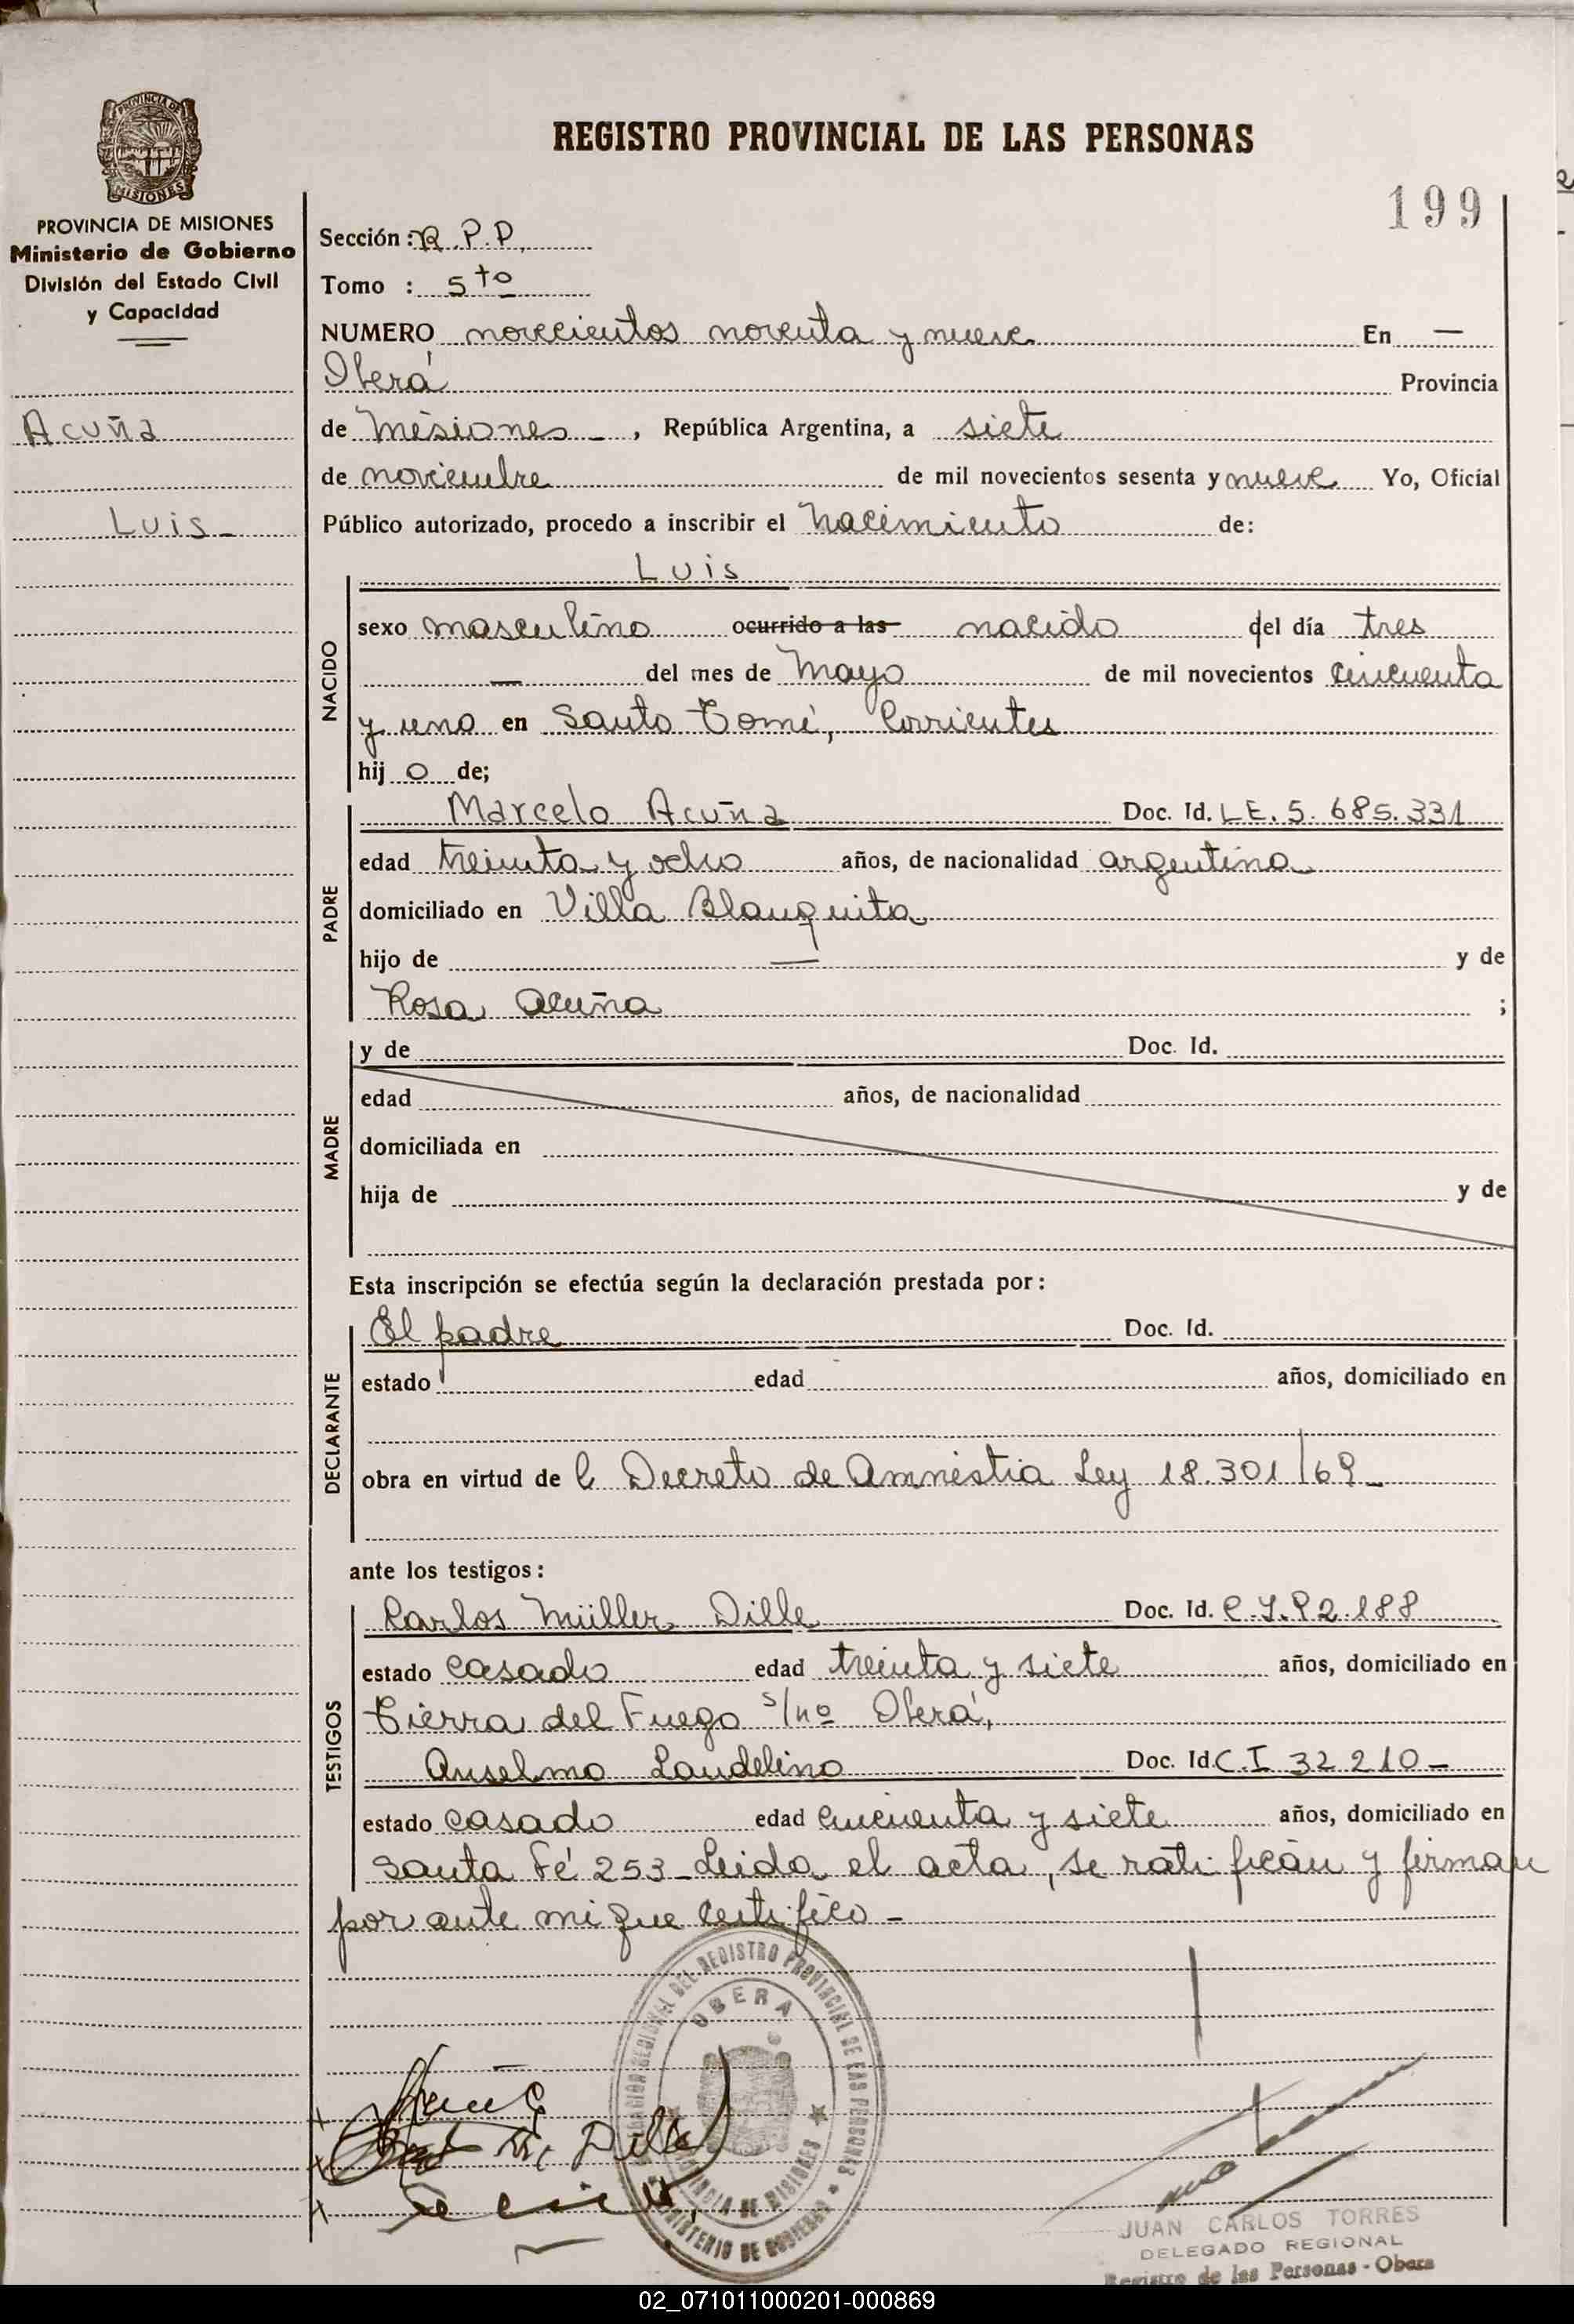 REGISTRO PROVINCIAL DE LAS PERSONAS
199
PROVINCIA DE MISIONES
PROVINCIA DE MISIONES
Ministerio de Gobierno
División del Estado Civil
y Capacidad
Acuña
Luis -
Sección : R.P.P.
Tomo : 5to
NUMERO novecientos noventa y nueve En —
Oberá Provincia
de Misiones - , República Argentina, a siete
de noviembre de mil novecientos sesenta y nueve Yo, Oficial
Público autorizado, procedo a inscribir el nacimiento de:
Luis
NACIDO
sexo masculino ocurrido a las nacido del día tres
— del mes de Mayo de mil novecientos cincuenta
y uno en Santo Tomé, Corrientes
hij o de;
PADRE
Marcelo Acuña Doc. Id. L.E. 5.685.331
edad treinta y ocho años, de nacionalidad argentina
domiciliado en Villa Blanquita
hijo de — y de
Rosa Acuña ;
MADRE
y de Doc. Id.
edad años, de nacionalidad
domiciliada en
hija de y de
Esta inscripción se efectúa según la declaración prestada por:
DECLARANTE
El padre Doc. Id.
estado edad años, domiciliado en
obra en virtud de l Decreto de Amnistia Ley 18.301/69 -
ante los testigos:
TESTIGOS
Carlos Müller Dille Doc. Id. C.I. 92.188
estado casado edad treinta y siete años, domiciliado en
Tierra del Fuego s/nº Oberá,
Anselmo Laudelino Doc. Id. C.I 32210 -
estado casado edad cincuenta y siete años, domiciliado en
Santa Fé 253 - Leida el acta, se ratifican y firman
por ante mi que certifico -
DEL REGISTRO PROVINCIAL DE LAS PERSONAS
OBERA
PROVINCIA DE MISIONES
MINISTERIO DE GOBIERNO
Dille
JUAN CARLOS TORRES
DELEGADO REGIONAL
Registro de las Personas - Obera
02_071011000201-000869